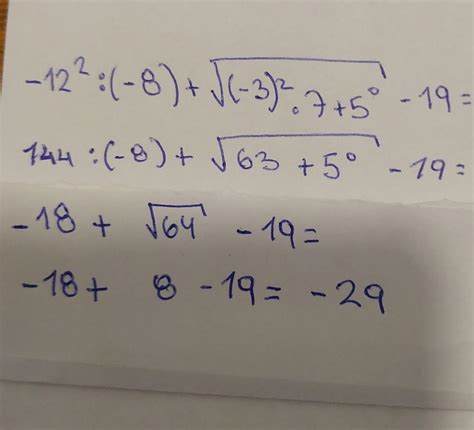 -12² : (-8) + √((-3)² · 7 + 5⁰) - 19 =
144 : (-8) + √(63 + 5⁰) - 19 =
-18 + √64 - 19 =
-18 + 8 - 19 = -29